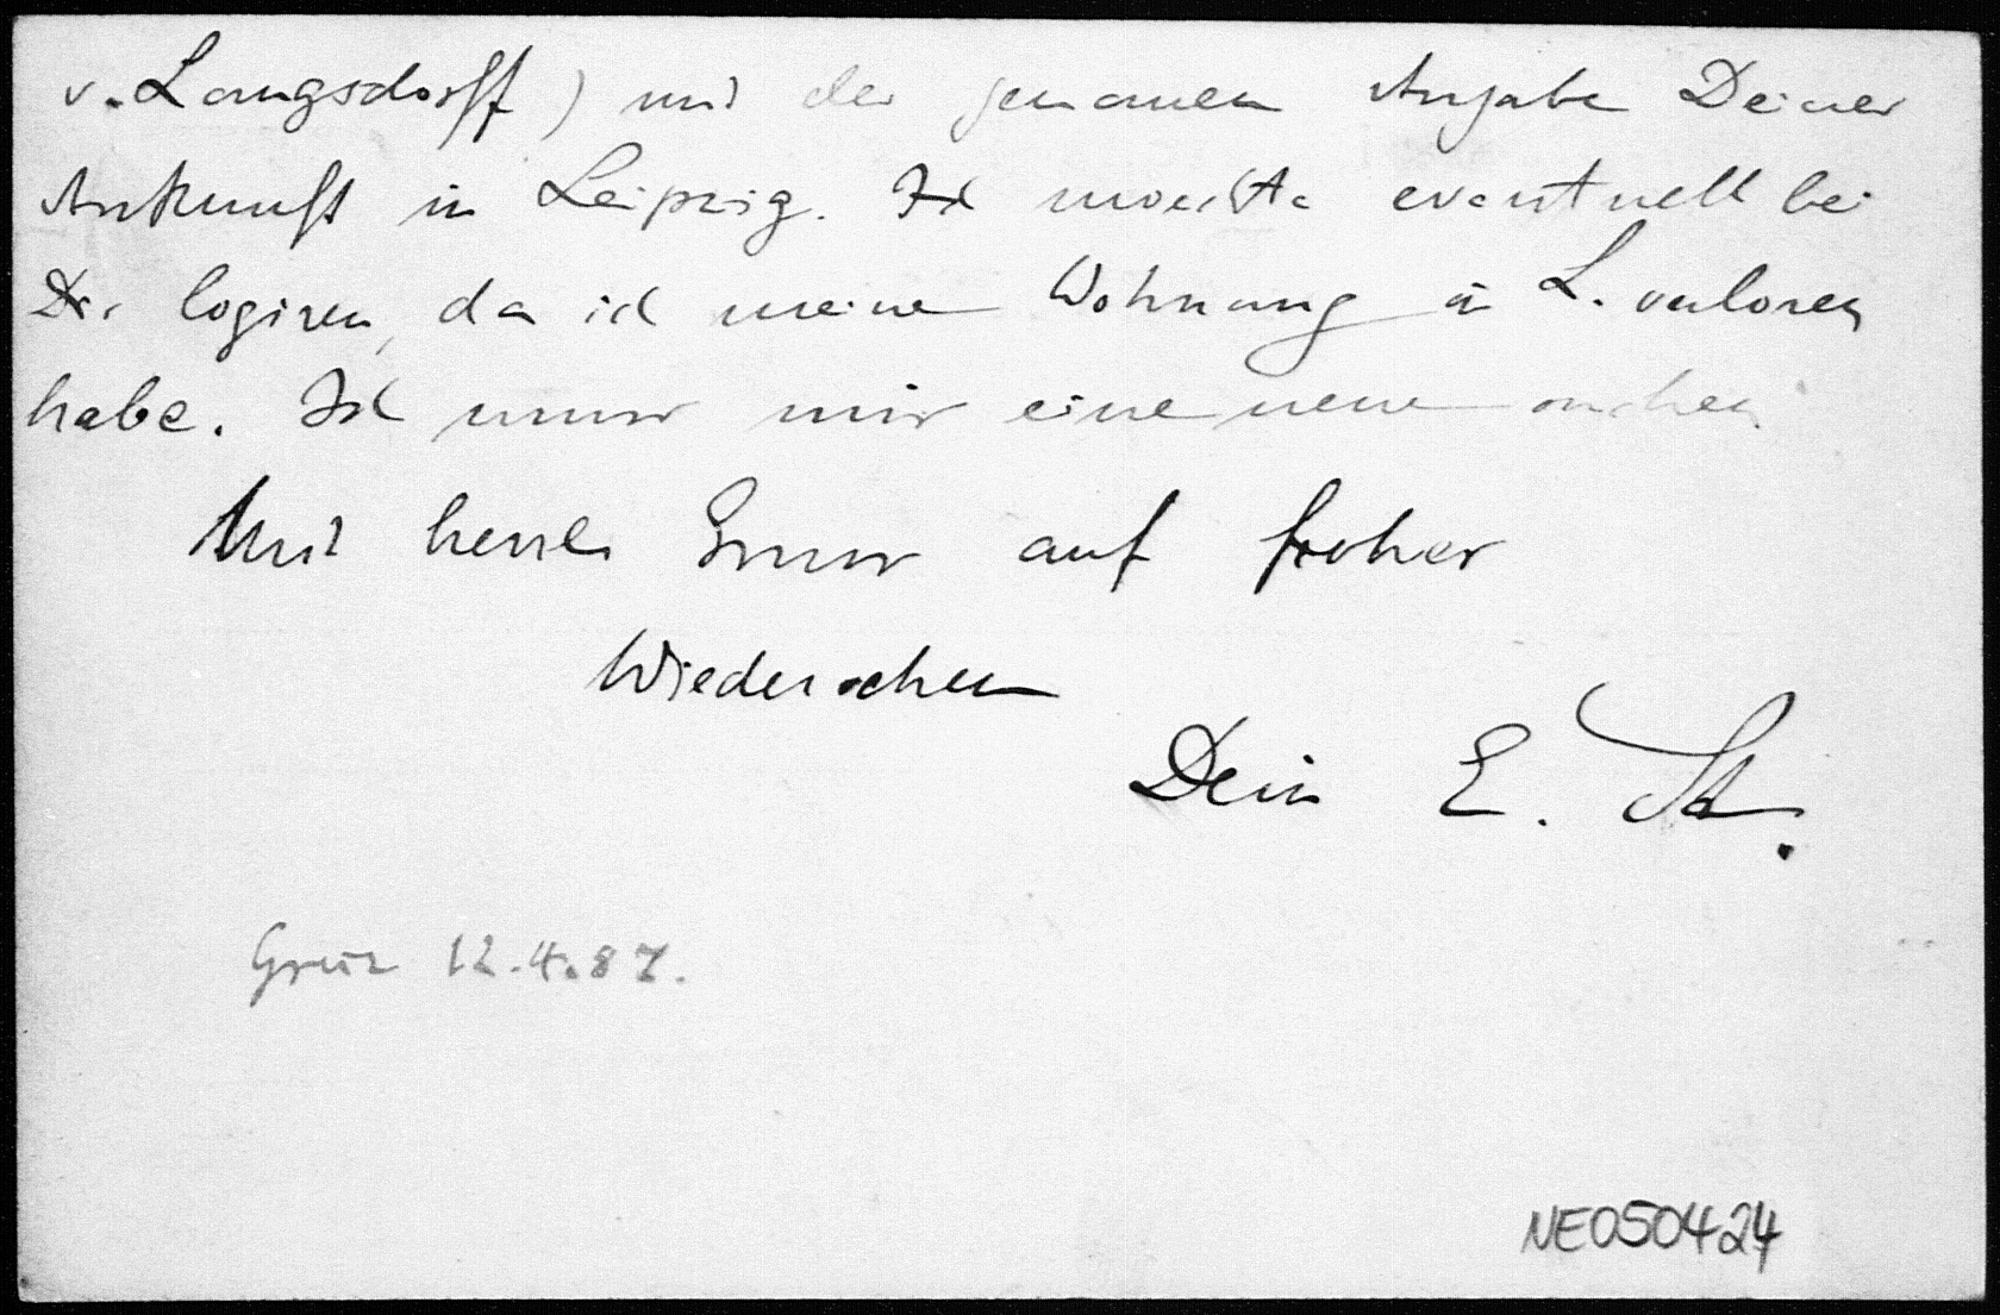 v. Langsdorff) mit der genauen Angabe Deiner
Ankunft in Leipzig. Ich moechte eventuell bei
Dir logiren, da ich meine Wohnung in L. verloren
habe. Ich muss mir eine neue suchen.
Mit herzl. Gruss auf frohes
Wiedersehen
Dein E. St.
Greiz 12.4.87.
NE050424